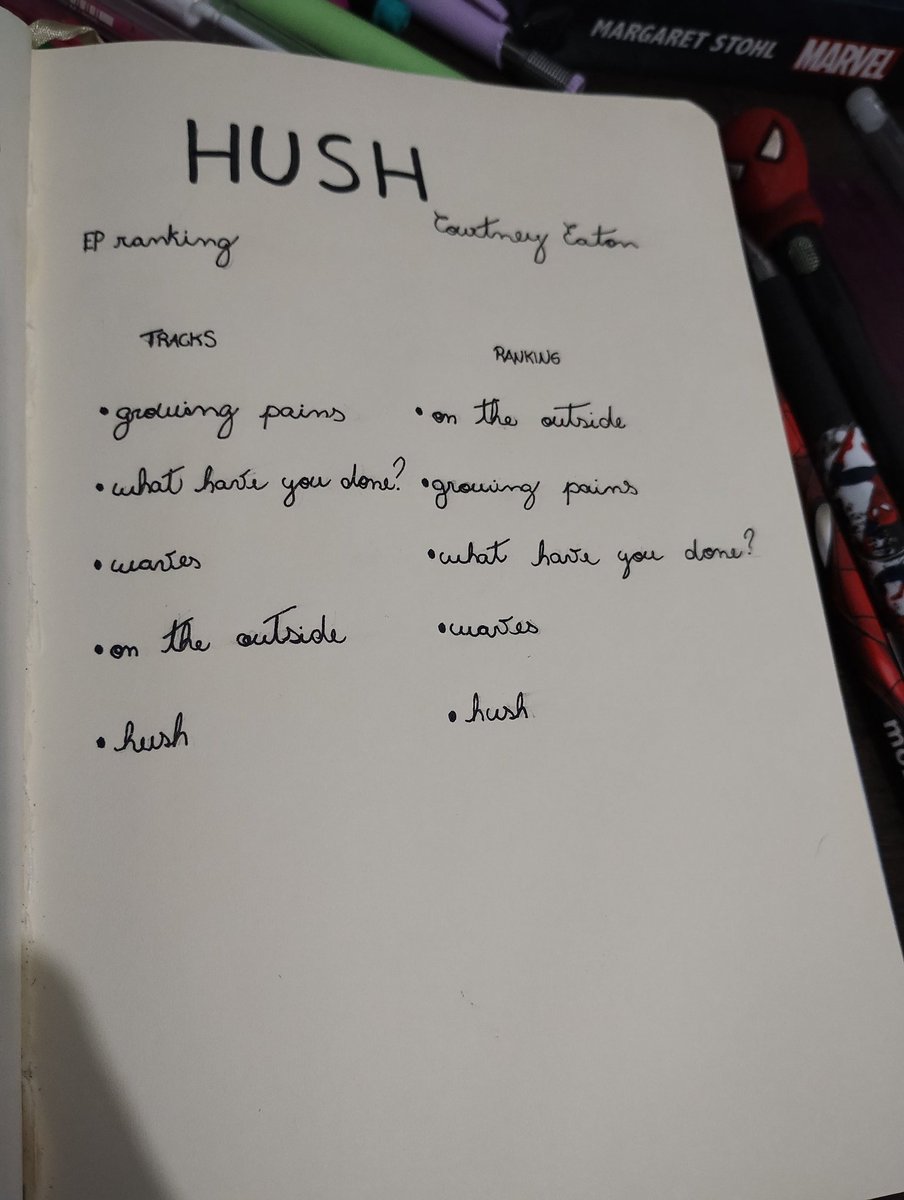 MARGARET STOHL MARVEL
HUSH
EP ranking
Courtney Eaton
TRACKS
• growing pains
• what have you done?
• waves
• on the outside
• hush
RANKING
• on the outside
• growing pains
• what have you done?
• waves
• hush